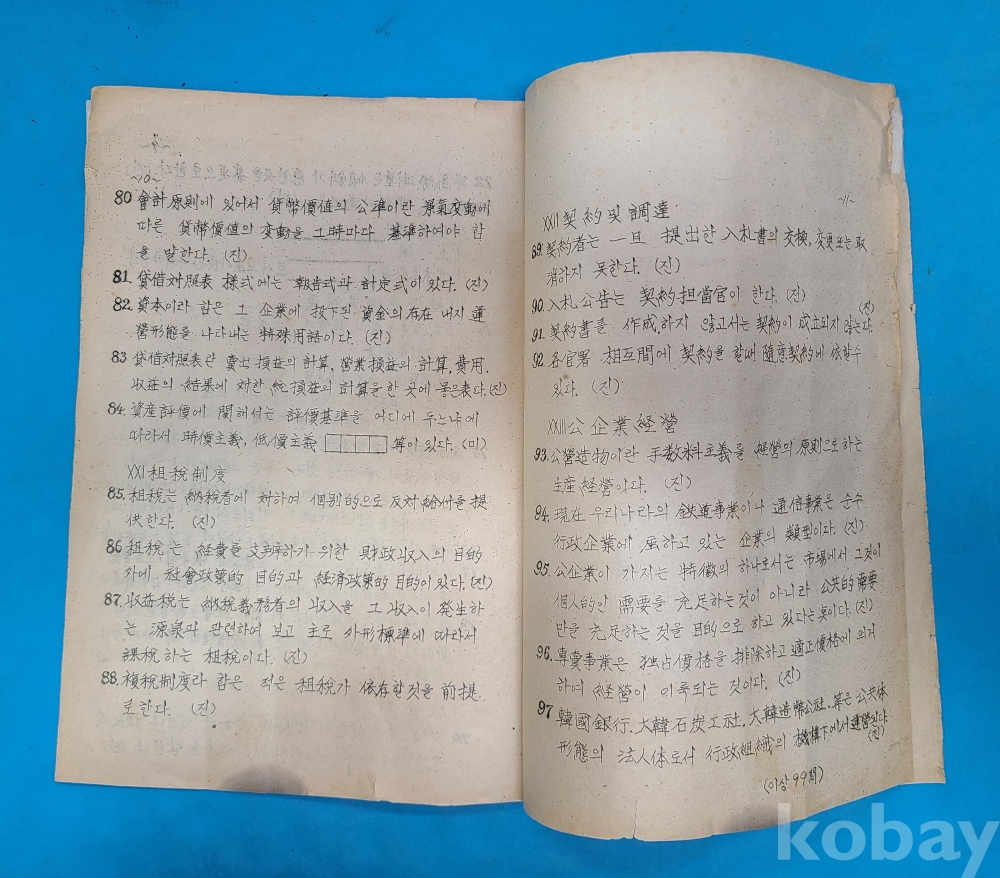 ~10~
80 會計原則에 있어서 貨幣價値의 公準이란 景氣変動에
따른 貨幣價値의 変動을 그時마다 基準하여야 함
을 말한다. (진)
81. 貸借対照表 様式에는 報告式과 計定式이 있다. (진)
82. 資本이라 함은 그 企業에 投下된 資金의 存在 내지 運
營形態를 나타내는 特殊用語이다. (진)
83 貸借対照表란 賣出損益의 計算, 營業損益의 計算, 費用,
収益의 結果에 対한 純損益의 計算을 한 곳에 몰은表다.(진)
84. 資産評價에 関해서는 評價基準을 어디에 두느냐에
따라서 時價主義, 低價主義 等이 있다. (미)
XXI 租税制度
85. 租税는 納税者에 対하여 個別的으로 反対給付를 提
供한다. (진)
86 租税는 経費를 支弁하기 위한 財政収入의 目的
外에 社會政策的 目的과 経済政策的 目的이 있다. (진)
87. 収益税는 納税義務者의 収入을 그 収入이 発生하
는 源泉과 関連하여 보고 主로 外形標準에 따라서
課税하는 租税이다. (진)
88. 複税制度라 함은 적은 租税가 依存할것을 前提
로한다. (진)
~11~
XXII 契約 및 調達
89. 契約者는 一旦 提出한 入札書의 交換, 変更 또는 取
消하지 못한다. (진)
90. 入札公告는 契約担當官이 한다. (진)
91. 契約書를 作成하지 않고서는 契約이 成立되지 않는다. (진)
92. 各官署 相互間에 契約을 할때 隨意契約에 依할수
있다. (진)
XXIII 公企業経營
93. 公營造物이란 手数料主義를 経營의 原則으로하는
生産経營이다. (진)
94. 現在 우리나라의 鉄道事業이나 通信事業은 순수
行政企業에 屬하고 있는 企業의 類型이다. (진)
95. 公企業이 가지는 特徴의 하나로서는 市場에서 그것이
個人的인 需要를 充足하는것이 아니라 公共的 需要
만을 充足하는 것을 目的으로 하고 있다는 点이다. (진)
96. 專賣事業은 独占價格을 排除하고 適正價格에 의거
하여 経營이 이룩되는 것이다. (진)
97 韓國銀行, 大韓石炭工社, 大韓造幣公社, 等은 公共体
形態의 法人体로서 行政組織의 機構下에서 運營된다. (진)
(이상 99問)
kobay